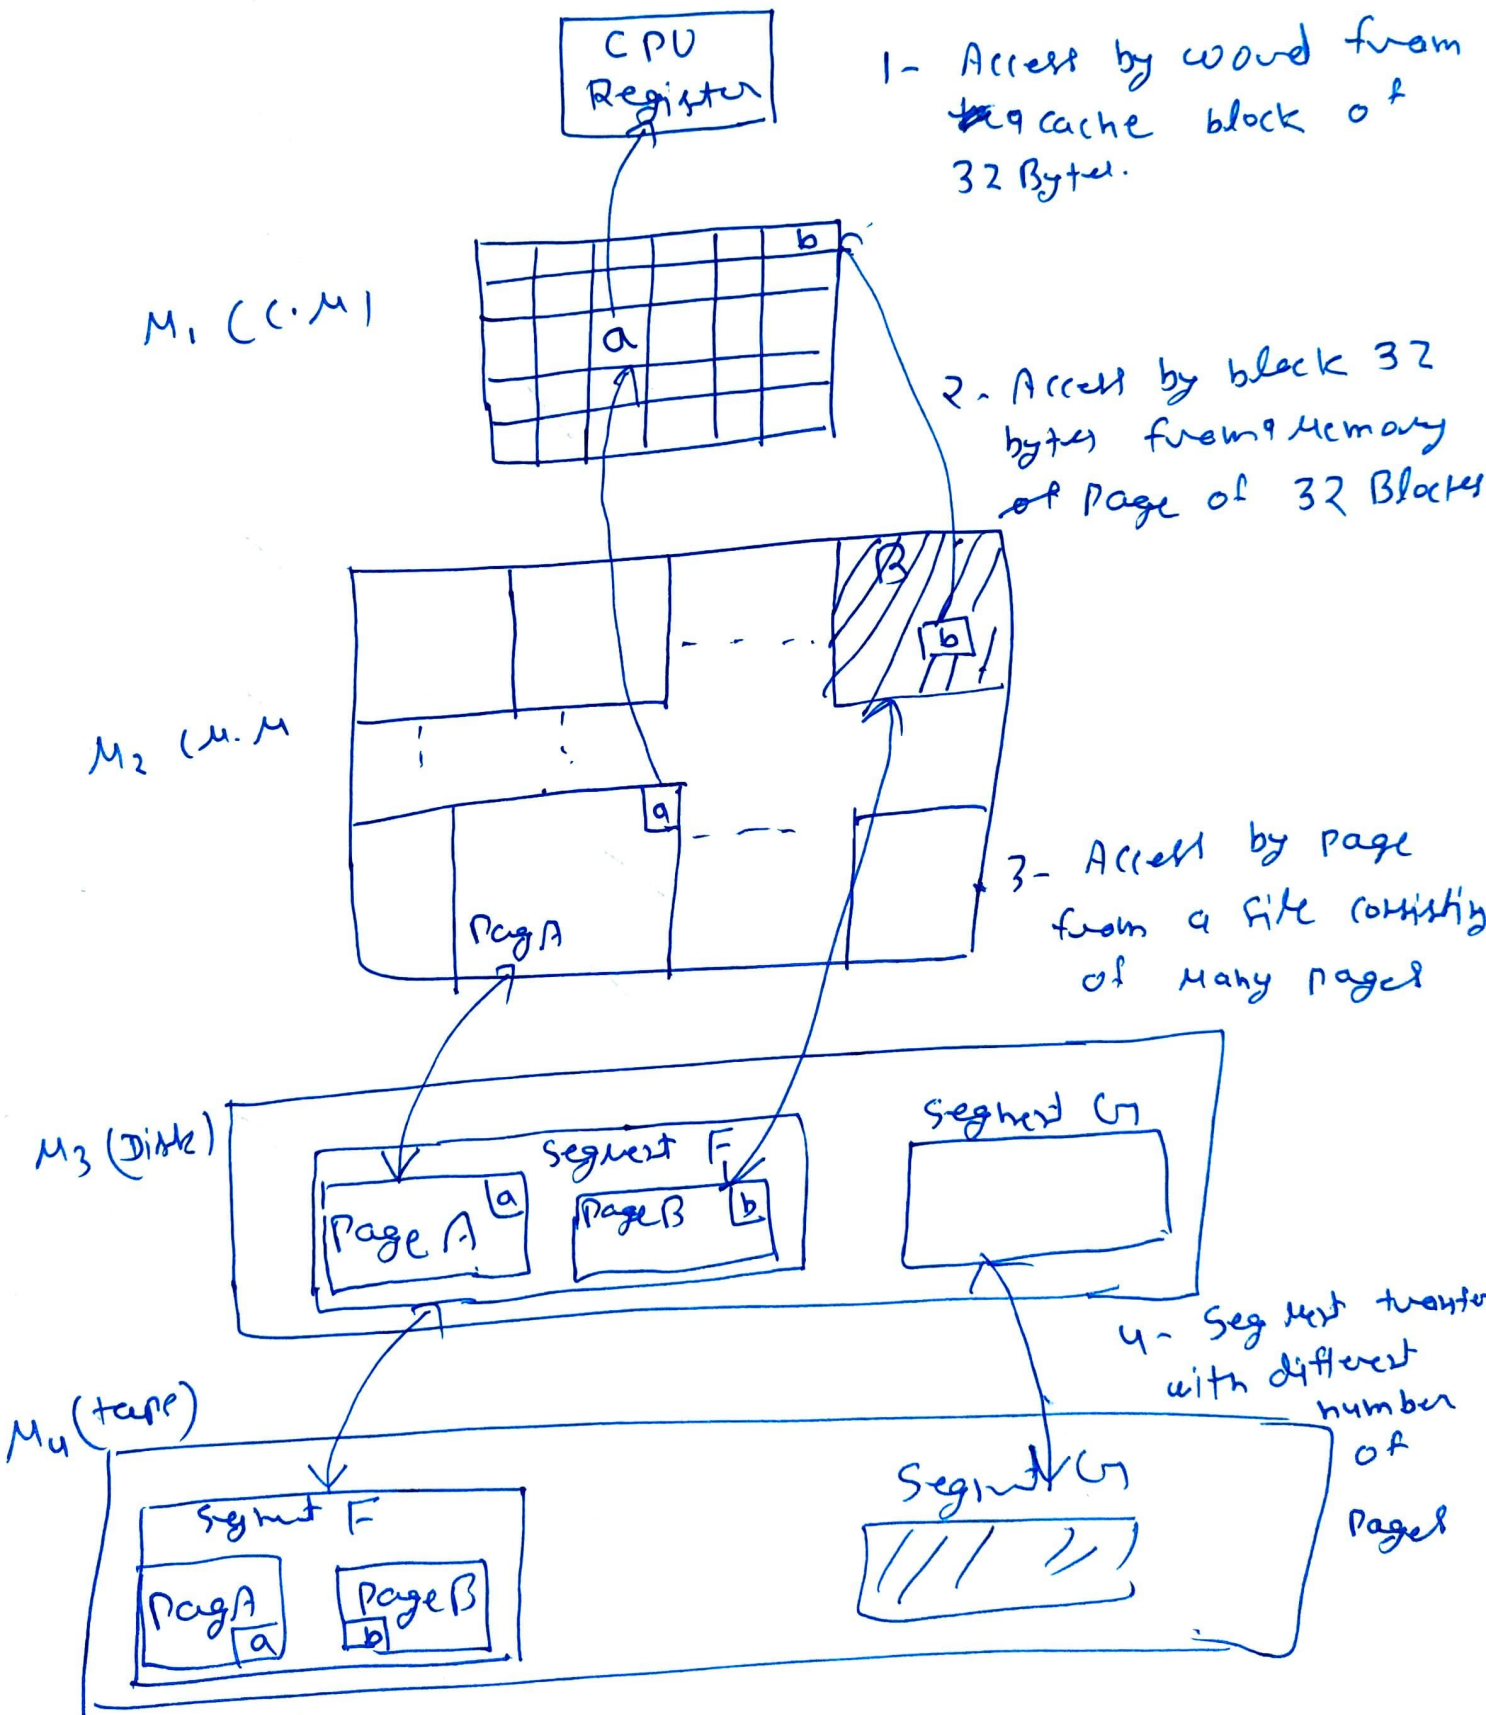 CPU
Register
1- Access by word from
a cache block of
32 Bytes.
b
M1 (C.M)
a
2- Access by block 32
bytes from a Memory
Page of 32 Blockes
B
b
M2 (M.M
a
Pag A
3- Access by page
from a file consisting
of many pages
M3 (Disk)
Segment F
Segment G
a
Page A
Page B
b
4- Segment transfer
with different
number
of
Pages
M4 (tape)
Segment F
Segment G
Pag A
a
Page B
b